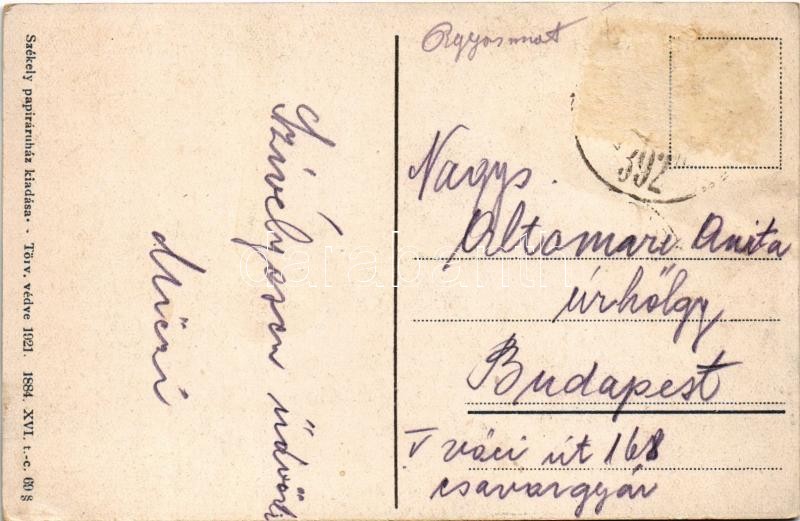 Székely papíráruház kiadása. - Törv. védve 1921. 1884. XVI. t.-c. 60 §
Szívélyesen üdvözli
392
Nagys.
Altomare Anita
úrhölgy
Budapest
V váci út 168
csavargyár
darabanth